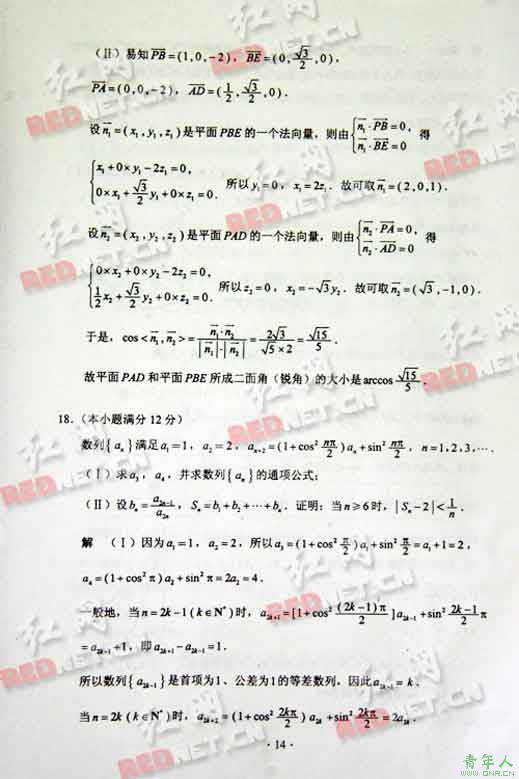 (Ⅱ) 易知 $\overrightarrow{PB}=(1,0,-2)$, $\overrightarrow{BE}=(0,\frac{\sqrt{3}}{2},0)$,
$\overrightarrow{PA}=(0,0,-2)$, $\overrightarrow{AD}=(\frac{1}{2},\frac{\sqrt{3}}{2},0)$.
设 $\overrightarrow{n_1}=(x_1,y_1,z_1)$ 是平面 PBE 的一个法向量，则由 $\begin{cases}\overrightarrow{n_1}\cdot\overrightarrow{PB}=0,\\ \overrightarrow{n_1}\cdot\overrightarrow{BE}=0\end{cases}$ 得
$\begin{cases}x_1+0×y_1-2z_1=0,\\ 0×x_1+\frac{\sqrt{3}}{2}y_1+0×z_1=0.\end{cases}$ 所以 $y_1=0$, $x_1=2z_1$. 故可取 $\overrightarrow{n_1}=(2,0,1)$.
设 $\overrightarrow{n_2}=(x_2,y_2,z_2)$ 是平面 PAD 的一个法向量，则由 $\begin{cases}\overrightarrow{n_2}\cdot\overrightarrow{PA}=0,\\ \overrightarrow{n_2}\cdot\overrightarrow{AD}=0\end{cases}$ 得
$\begin{cases}0×x_2+0×y_2-2z_2=0,\\ \frac{1}{2}x_2+\frac{\sqrt{3}}{2}y_2+0×z_2=0.\end{cases}$ 所以 $z_2=0$, $x_2=-\sqrt{3}y_2$. 故可取 $\overrightarrow{n_2}=(\sqrt{3},-1,0)$.
于是, $\cos<\overrightarrow{n_1},\overrightarrow{n_2}>=\frac{\overrightarrow{n_1}\cdot\overrightarrow{n_2}}{|\overrightarrow{n_1}|\cdot|\overrightarrow{n_2}|}=\frac{2\sqrt{3}}{\sqrt{5}×2}=\frac{\sqrt{15}}{5}$.
故平面 PAD 和平面 PBE 所成二面角（锐角）的大小是 $\arccos\frac{\sqrt{15}}{5}$.
18.（本小题满分 12 分）
数列{$a_n$}满足 $a_1=1$, $a_2=2$, $a_{n+2}=(1+\cos^2\frac{n\pi}{2})a_n+\sin^2\frac{n\pi}{2}$, $n=1,2,3,\cdots$.
(Ⅰ) 求 $a_3$, $a_4$, 并求数列{$a_n$}的通项公式;
(Ⅱ) 设 $b_n=\frac{a_{2n-1}}{a_{2n}}$, $S_n=b_1+b_2+\cdots+b_n$. 证明: 当 $n≥6$ 时, $|S_n-2|<\frac{1}{n}$.
解 (Ⅰ) 因为 $a_1=1$, $a_2=2$, 所以 $a_3=(1+\cos^2\frac{\pi}{2})a_1+\sin^2\frac{\pi}{2}=a_1+1=2$,
$a_4=(1+\cos^2\pi)a_2+\sin^2\pi=2a_2=4$.
一般地, 当 $n=2k-1(k∈N^*)$ 时, $a_{2k+1}=[1+\cos^2\frac{(2k-1)\pi}{2}]a_{2k-1}+\sin^2\frac{2k-1}{2}\pi$
$=a_{2k-1}+1$, 即 $a_{2k+1}-a_{2k-1}=1$.
所以数列{$a_{2k-1}$}是首项为 1、公差为 1 的等差数列, 因此 $a_{2k-1}=k$.
当 $n=2k(k∈N^*)$ 时, $a_{2k+2}=(1+\cos^2\frac{2k\pi}{2})a_{2k}+\sin^2\frac{2k\pi}{2}=2a_{2k}$.
· 14 ·
红网
REDNET.CN
青年人
www.QNR.CN